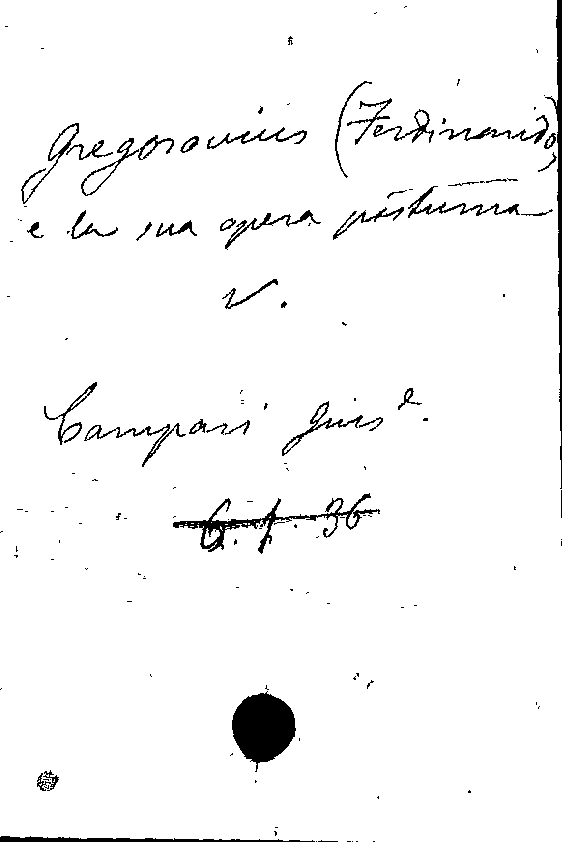 Gregorovius (Ferdinando)
e la sua opera postuma
V.
Campari Gius.e
G. 1. 36